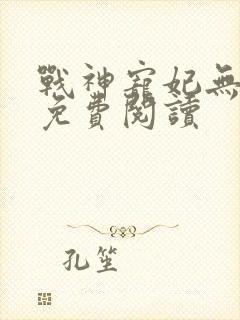 戰神寵妃無
免費閱讀
孔笙